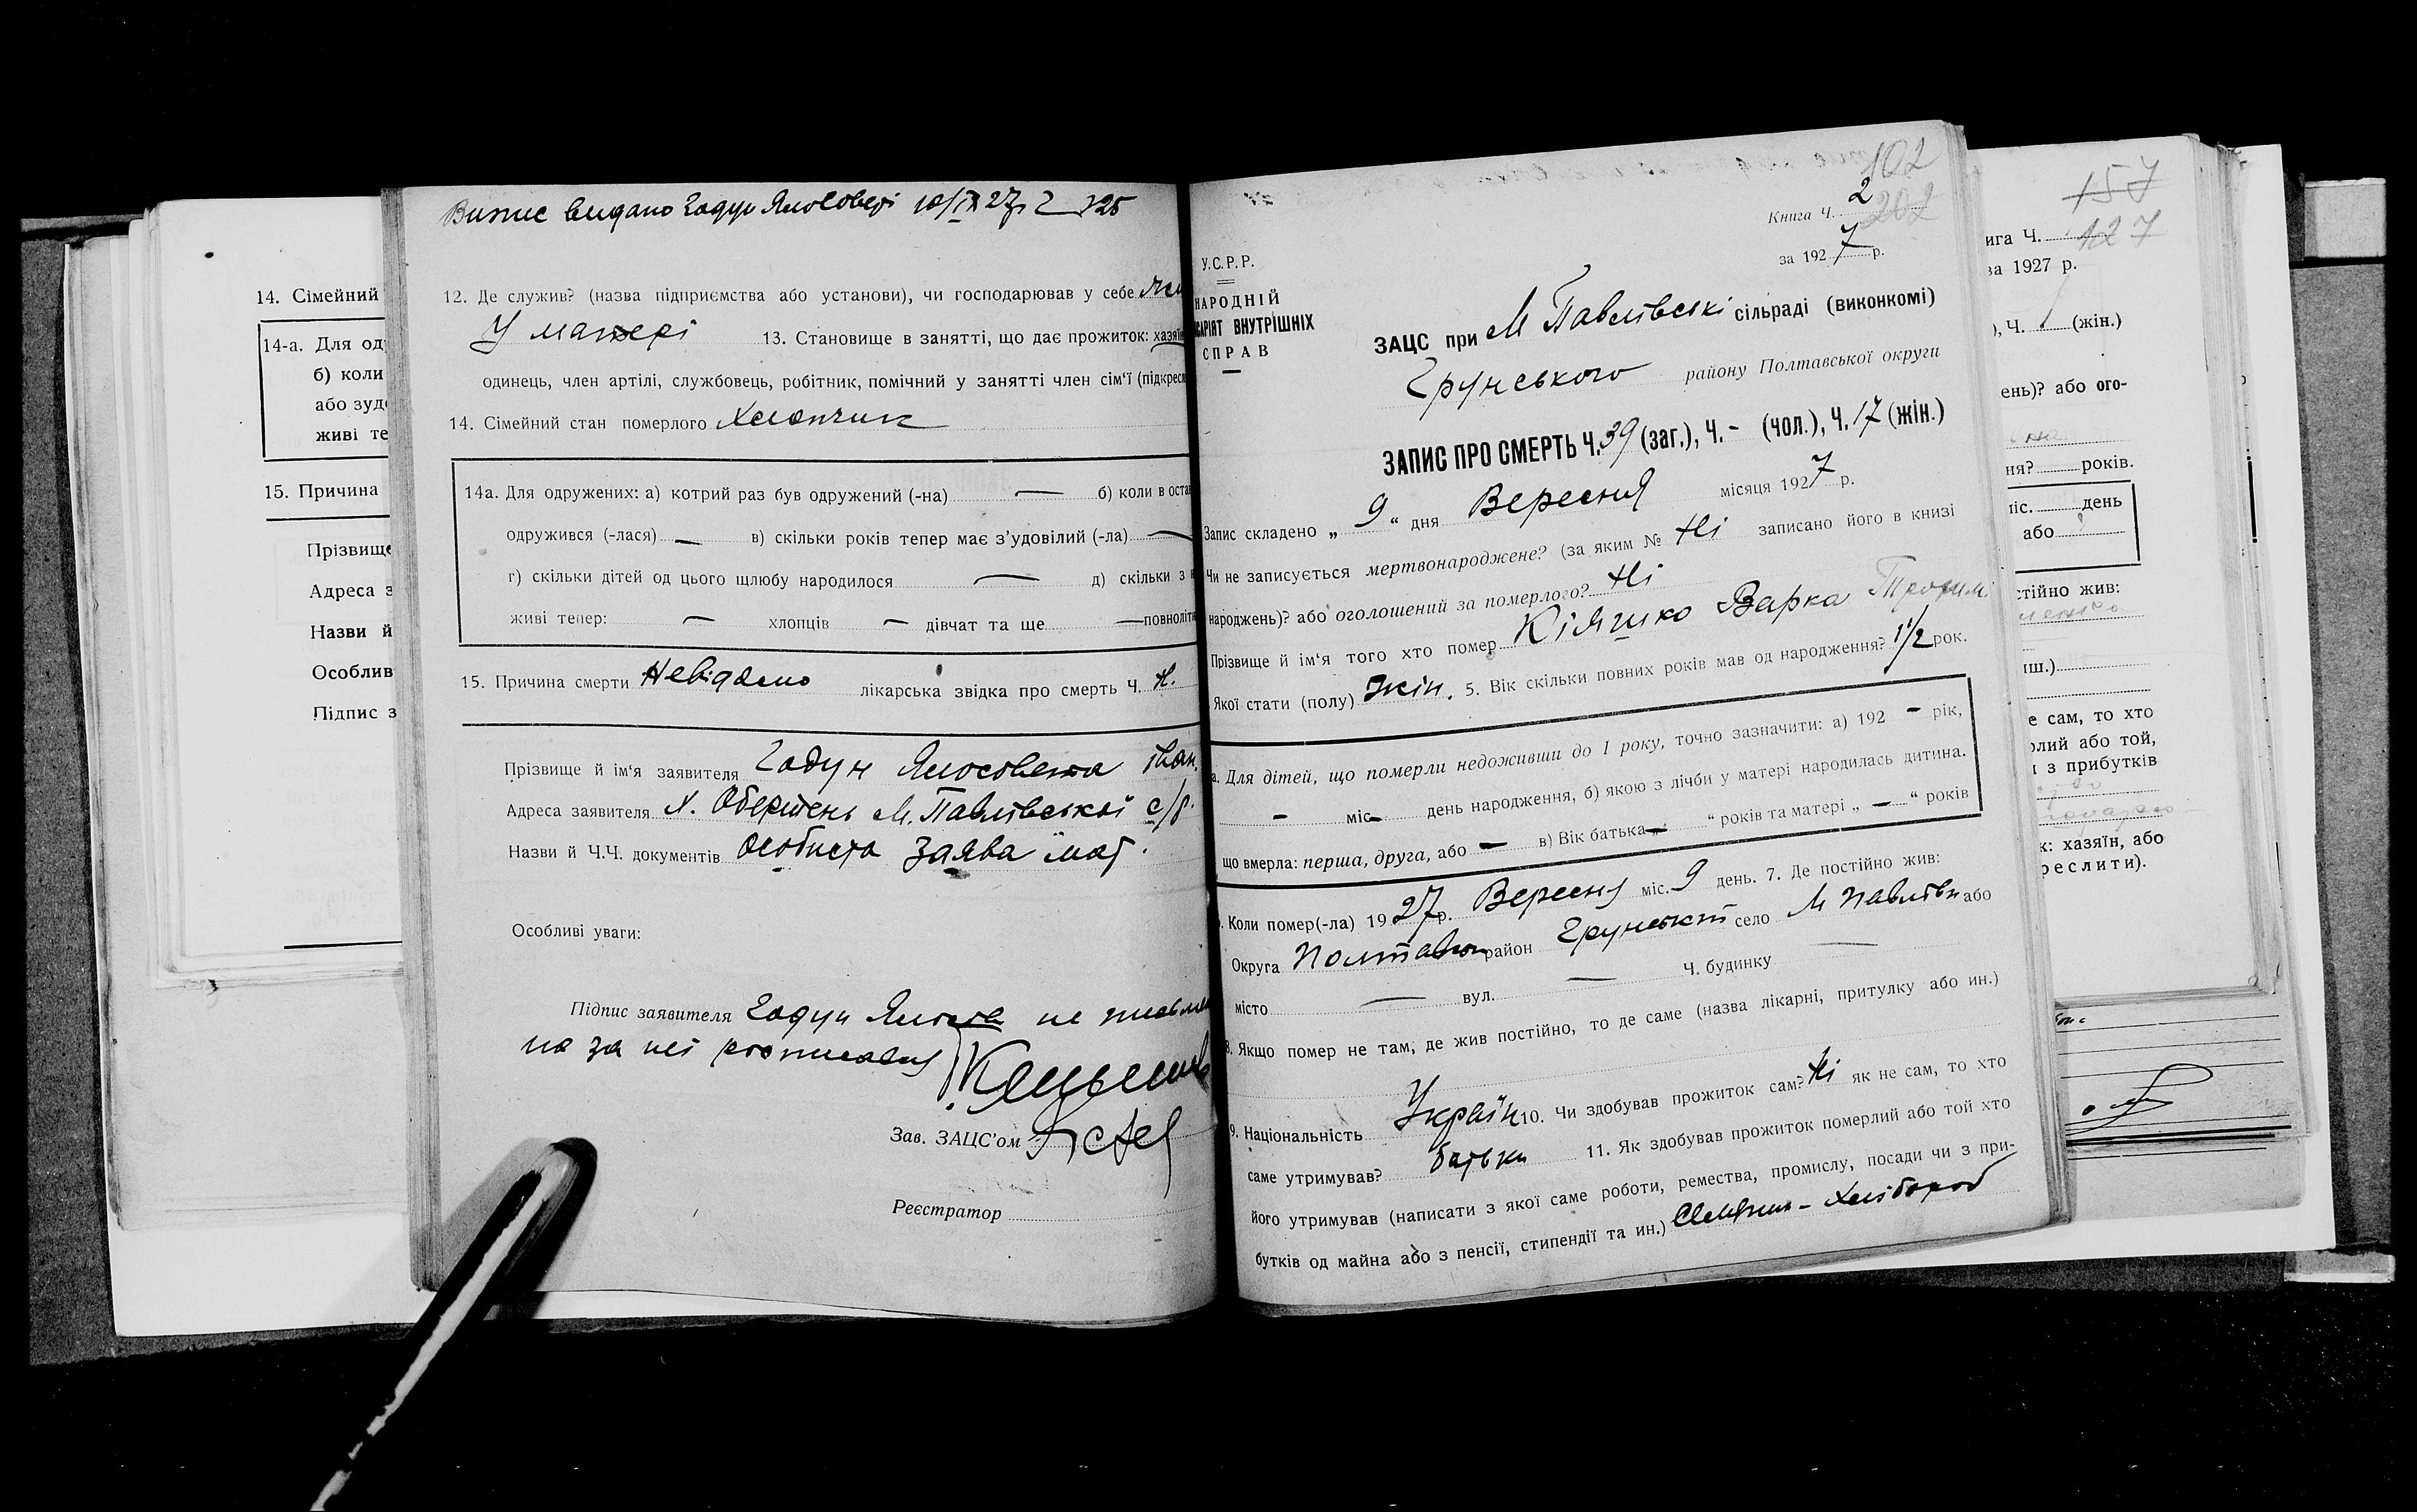 14. Сімейний
14-а. Для од
б) коли
або зуд
живі те
15. Причина
Прізвище
Адреса з
Назви й
Особлив
Підпис з
Випис видано Гадун 10/IX 27 р
12. Де служив? (назва підприємства або установи), чи господарював у себе
У матері 13. Становище в занятті, що дає прожиток: хазяїн
одинець, член артілі, службовець, робітник, помічний у занятті член сім'ї (підкресл
14. Сімейний стан померлого Хлопчик
14а. Для одружених: а) котрий раз був одружений (-на) — б) коли в оста
одружився (-лася) — в) скільки років тепер має з'удовілий (-ла) —
г) скільки дітей од цього щлюбу народилося — д) скільки з н
живі тепер: — хлопців — дівчат та ще — повноліт
15. Причина смерти Невідомо лікарська звідка про смерть Ч. Н.
Прізвище й ім'я заявителя Гадун Іван.
Адреса заявителя Х. М. Павлівської с/р.
Назви й Ч.Ч. документів Особиста заява мат.
Особливі уваги:
Підпис заявителя Гадун не письмен
на за неї
Зав. ЗАЦС'ом
Реєстратор
102
Книга Ч. 2 202
за 1927 р.
У.С.Р.Р.
НАРОДНІЙ
САРІЯТ ВНУТРІШНІХ
СПРАВ
ЗАЦС при М Павлівські сільраді (виконкомі)
Грунського району Полтавської округи
ЗАПИС ПРО СМЕРТЬ Ч. 39 (заг.), Ч. - (чол.), Ч. 17 (жін.)
Запис складено „ 9 " дня Вересня місяця 1927 р.
Чи не записується мертвонароджене? (за яким № Ні записано його в книзі
народжень)? або оголошений за померлого? Ні
Прізвище й ім'я того хто помер Кіяшко Варка
Якої стати (полу) жін. 5. Вік скільки повних років мав од народження? 1 1/2 рок.
а. Для дітей, що померли недоживши до 1 року, точно зазначити: а) 192 - рік,
- міс - день народження, б) якою з лічби у матері народилась дитина.
що вмерла: перша, друга, або — в) Вік батька „ — " років та матері „ — " років
Коли помер(-ла) 1927 р. Вересня міс. 9 день. 7. Де постійно жив:
Округа Полтавськ район Грунський село М Павлівки або
місто — вул. — Ч. будинку —
8. Якщо помер не там, де жив постійно, то де саме (назва лікарні, притулку або ин.)
9. Національність Україн 10. Чи здобував прожиток сам? Ні як не сам, то хто
саме утримував? батьки 11. Як здобував прожиток померлий або той хто
його утримував (написати з якої саме роботи, ремества, промислу, посади чи з при-
бутків од майна або з пенсії, стипендії та ин.) Селянин - Хлібороб
157
127
ига Ч.
за 1927 р.
), Ч. (жін.)
ень)? або ого-
ня? років.
міс. день
або
стійно жив:
иш.)
е сам, то хто
лий або той,
и з прибутків
к: хазяїн, або
реслити).